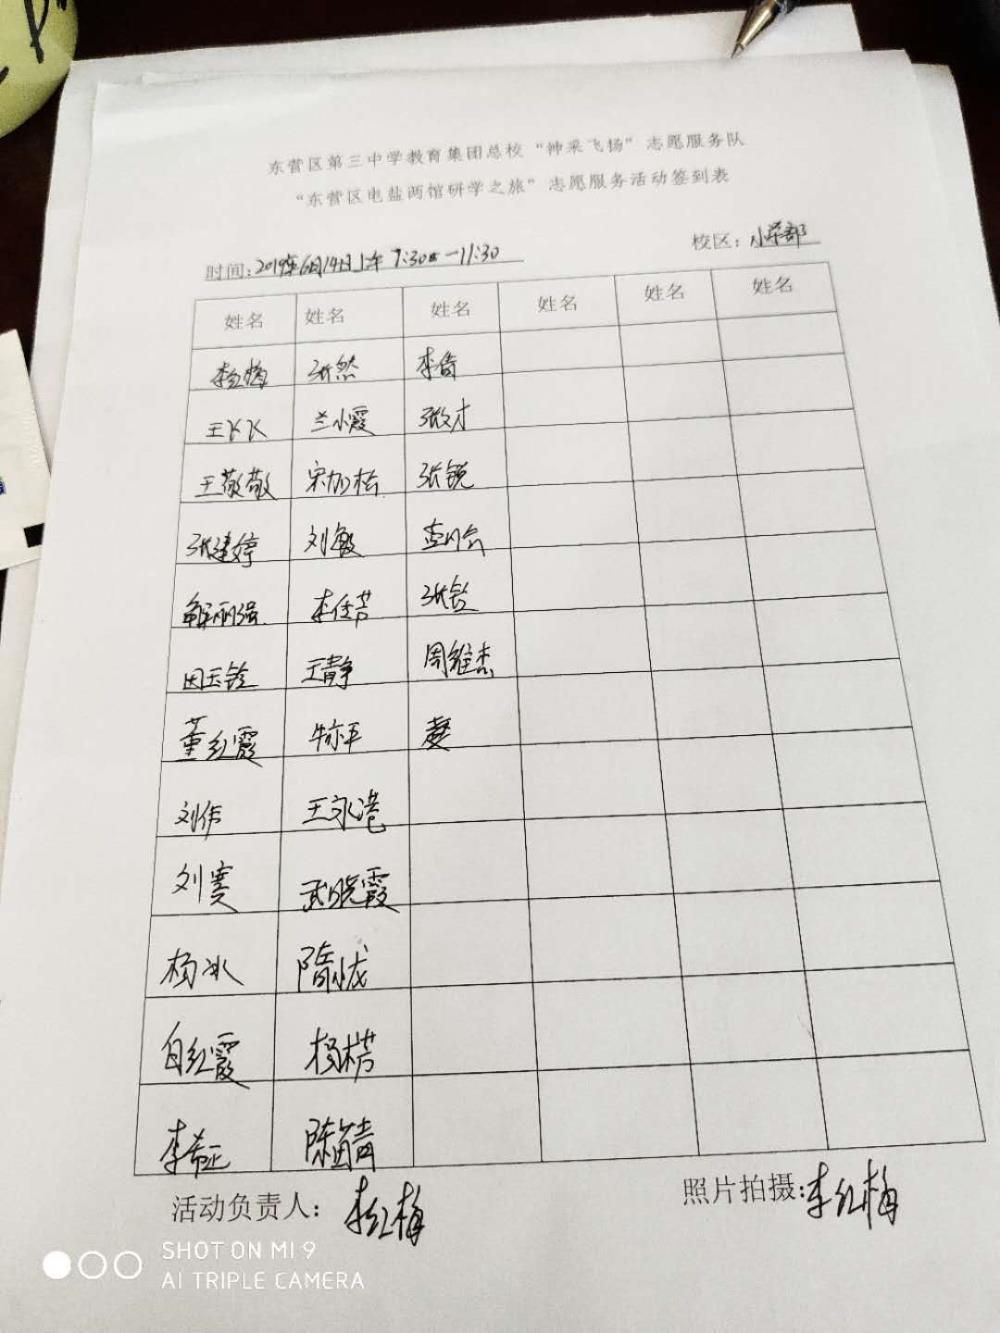 东营区第三中学教育集团总校“神采飞杨”志愿服务队
“东营区电盐两馆研学之旅”志愿服务活动签到表
校区：小学部
时间：2019年6月14日上午 7:30—11:30
姓名 姓名 姓名 姓名 姓名 姓名
李红梅 张然 李倩
王飞飞 兰小霞
王敬敬 宋加松 张锐
张建婷 刘敏
解丽强 李任芳 张铃
因玉铃 王静 周维杰
董红霞 牛亦平
刘伟 王永港
刘骞 武晓霞
杨冰 隋成
白红霞 杨楞
李希正 陈苗青
活动负责人：李红梅
照片拍摄：李红梅
SHOT ON MI 9
AI TRIPLE CAMERA